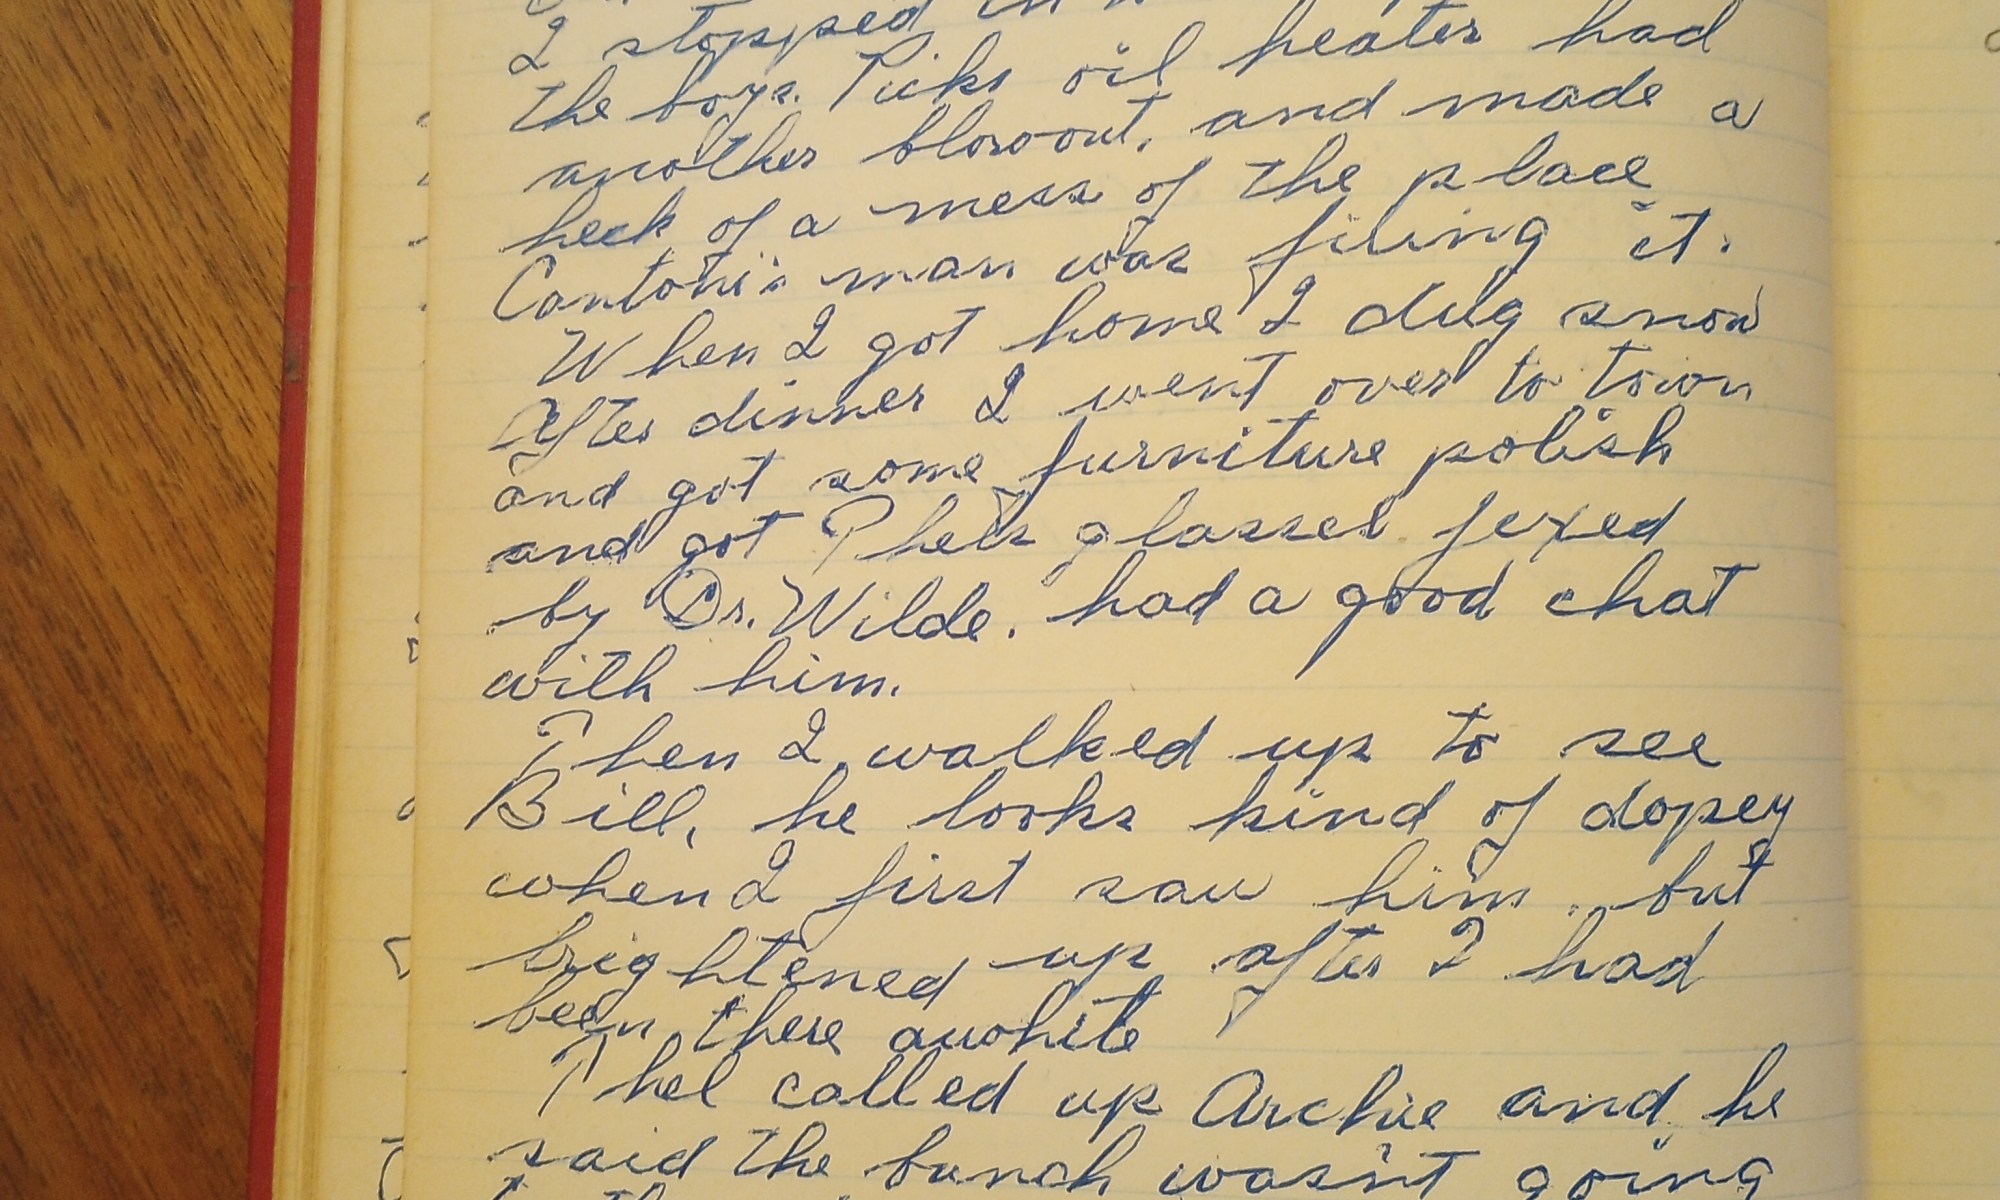 I stopped in
the boys. Picks oil heater had
another blowout, and made a
heck of a mess of the place
Contoni's man was fixing it.
When I got home I dug snow
After dinner I went over to town
and got some furniture polish
and got Thels glasses fexed
by Dr. Wilde. had a good chat
with him.
Then I walked up to see
Bill, he looks kind of dopey
when I first saw him, but
brightened up after I had
been there awhile
Thel called up Archie and he
said the bunch wasn't going